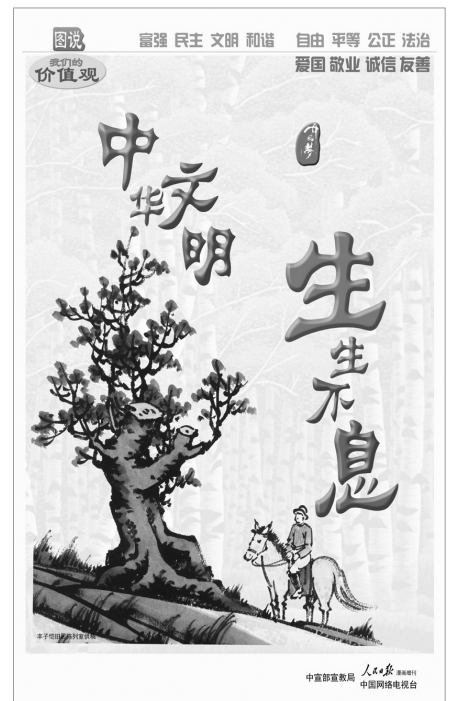 图说
我们的
价值观
富强 民主 文明 和谐 自由 平等 公正 法治
爱国 敬业 诚信 友善
中国梦
中华文明
生生不息
中宣部宣教局
人民日报 漫画增刊
中国网络电视台